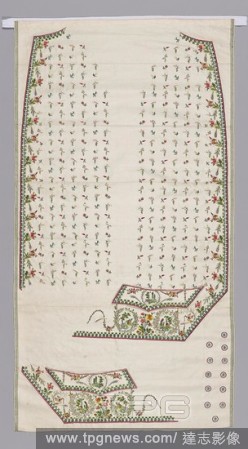 PG
www.tpgnews.com/ 達志影像